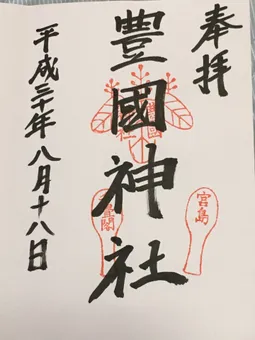 奉拝
豊國神社
宮島
平成三十年八月十八日